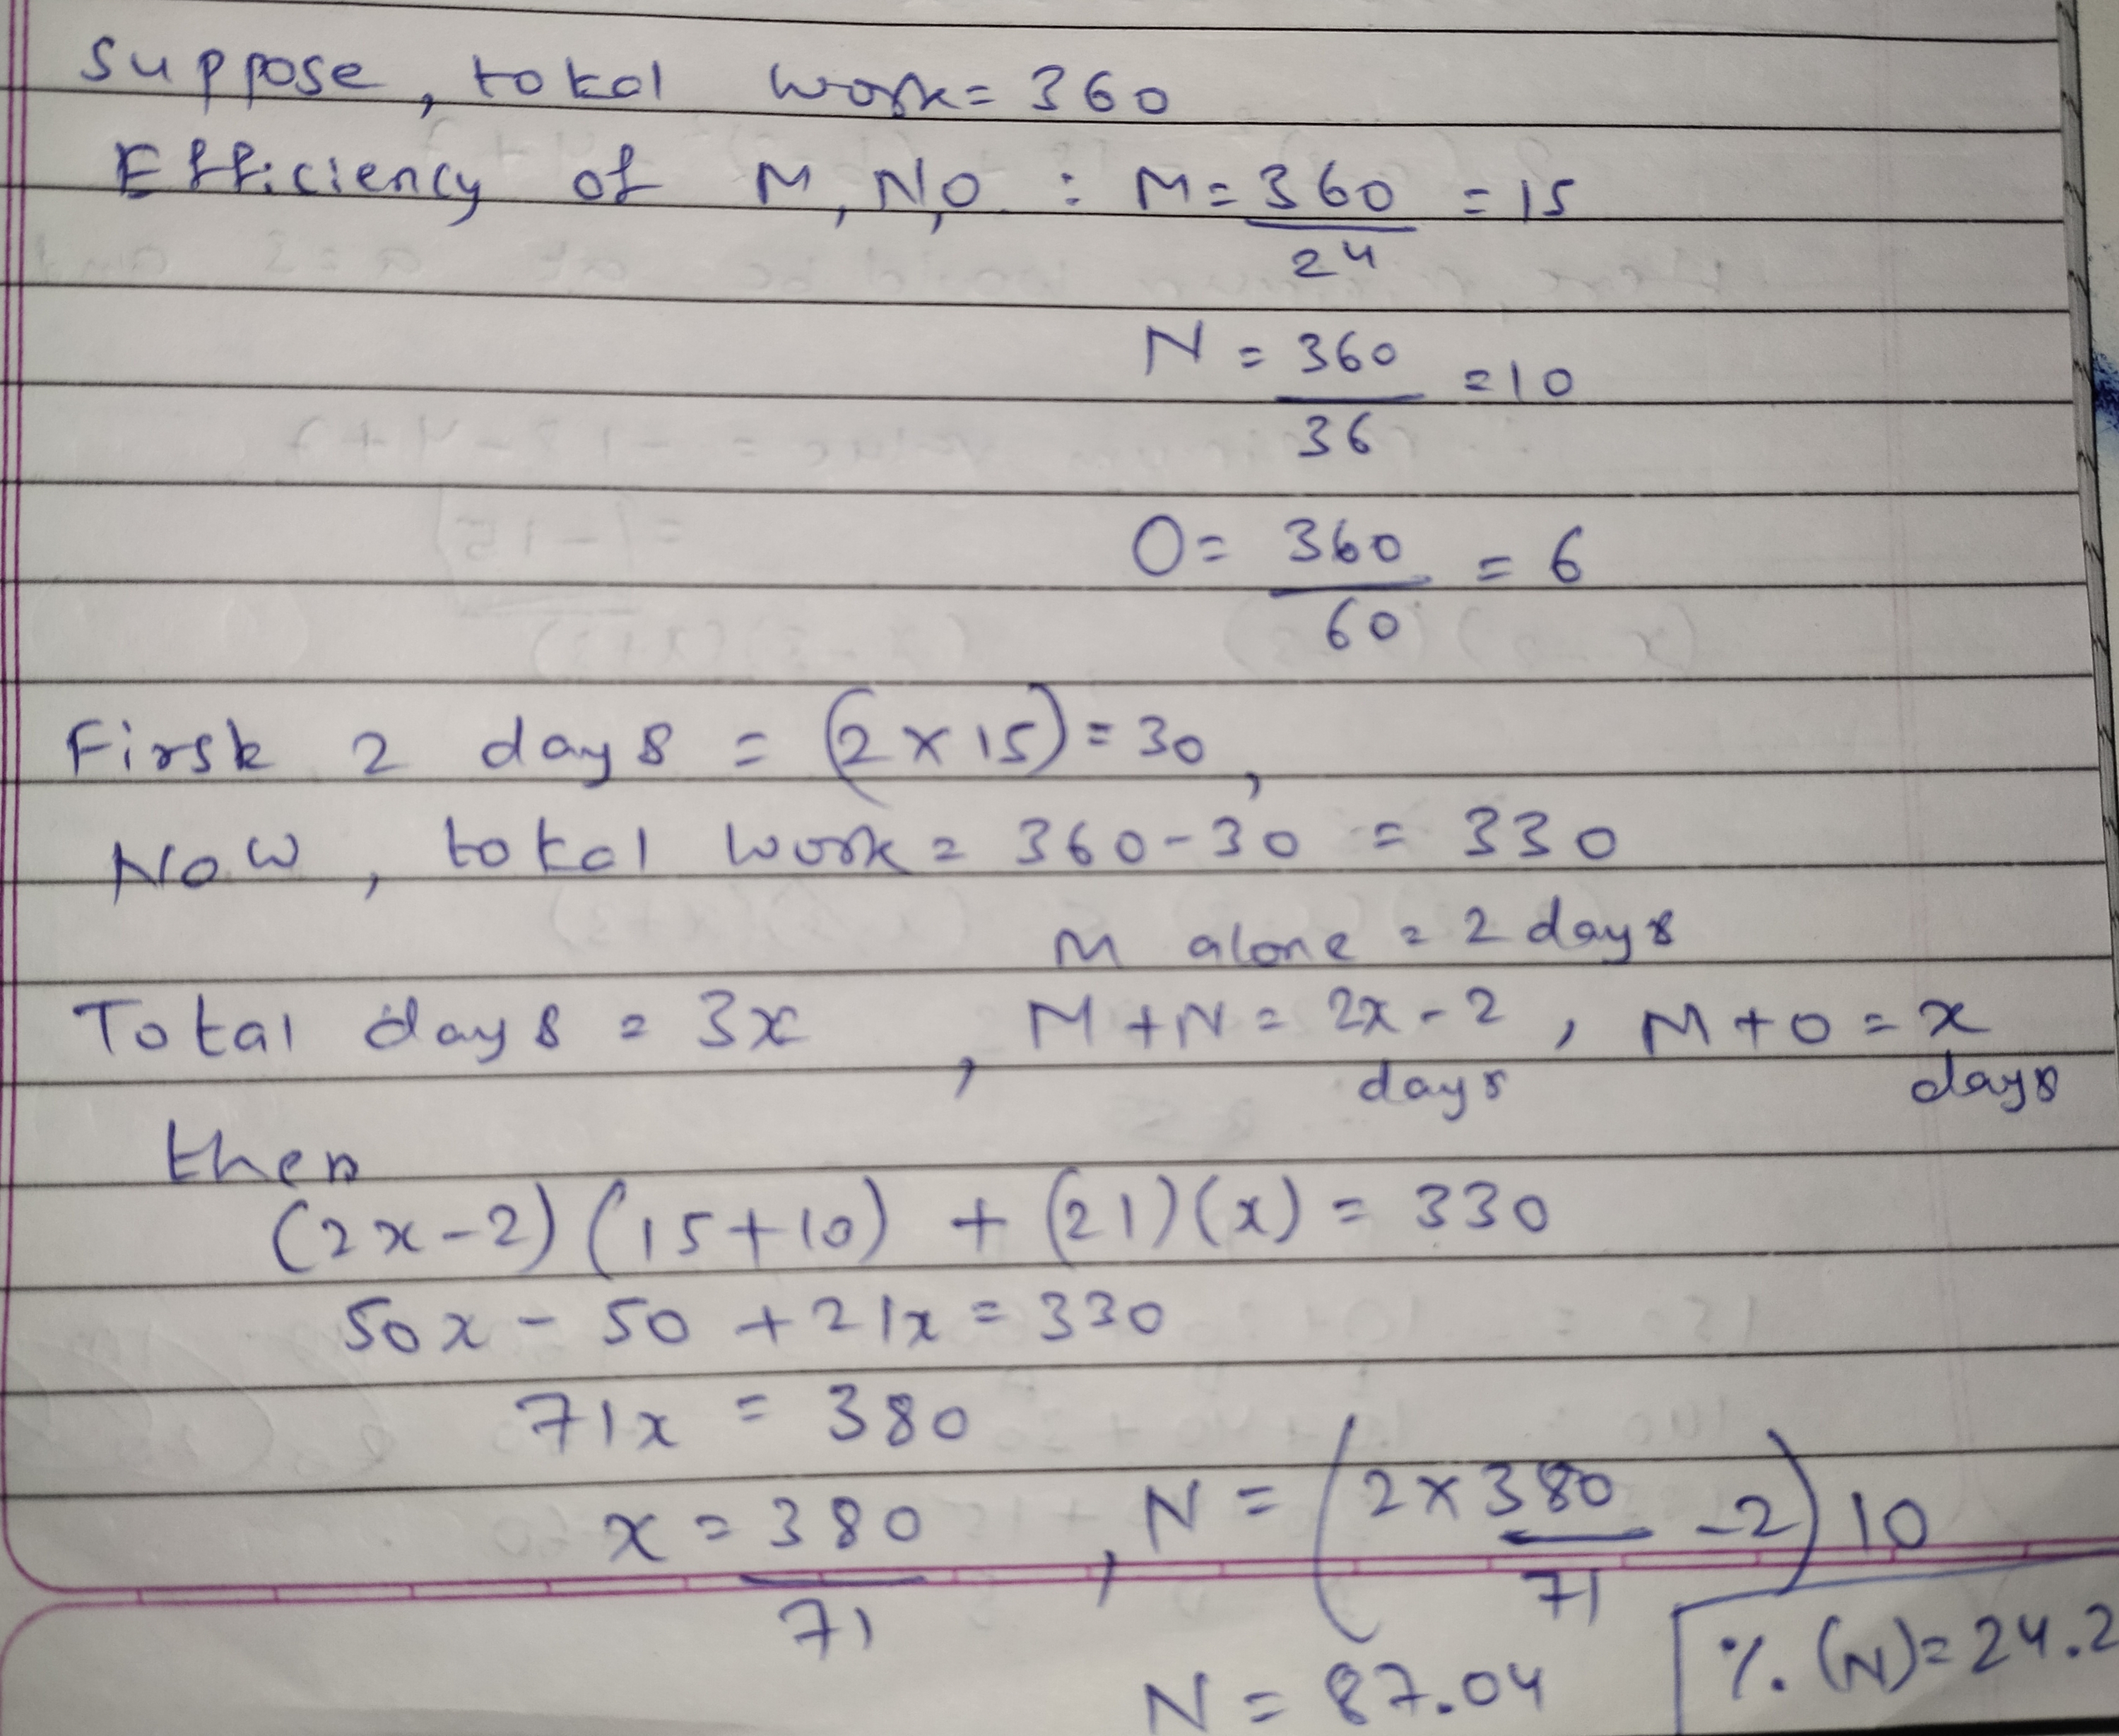 Suppose, total work = 360
Efficiency of M, N, O : M = 360/24 = 15
N = 360/36 = 10
O = 360/60 = 6
First 2 days = (2 × 15) = 30,
Now, total work = 360 - 30 = 330
M alone = 2 days
Total days = 3x, M + N = 2x - 2 days, M + O = x days
then
(2x - 2) (15 + 10) + (21)(x) = 330
50x - 50 + 21x = 330
71x = 380
x = 380/71, N = (2 × 380/71 - 2) 10
N = 87.04
% (N) = 24.2